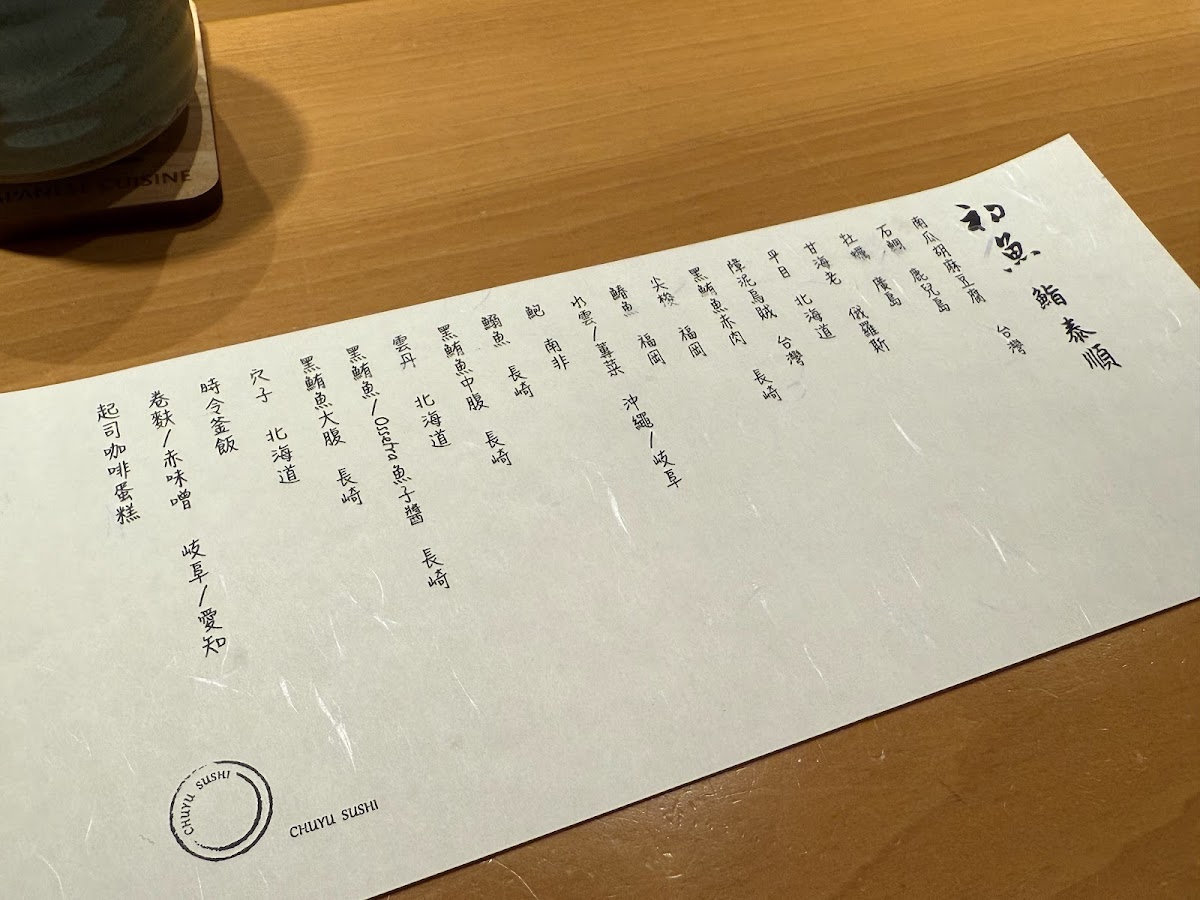 初魚 鮨 泰順
南瓜胡麻豆腐 台灣
石鯛 鹿兒島
牡蠣 廣島
甘海老 俄羅斯
平目 北海道
障泥烏賊 台灣
黑鮪魚赤肉 長崎
尖梭 福岡
鰆魚 福岡
水雲/蓴菜 沖繩/岐阜
鮑 南非
鰯魚 長崎
黑鮪魚中腹 長崎
雲丹 北海道
黑鮪魚/Ossetra魚子醬 長崎
黑鮪魚大腹 長崎
穴子 北海道
時令釜飯
卷麩/赤味噌 岐阜/愛知
起司咖啡蛋糕
CHUYU SUSHI
CHUYU SUSHI
CUISINE